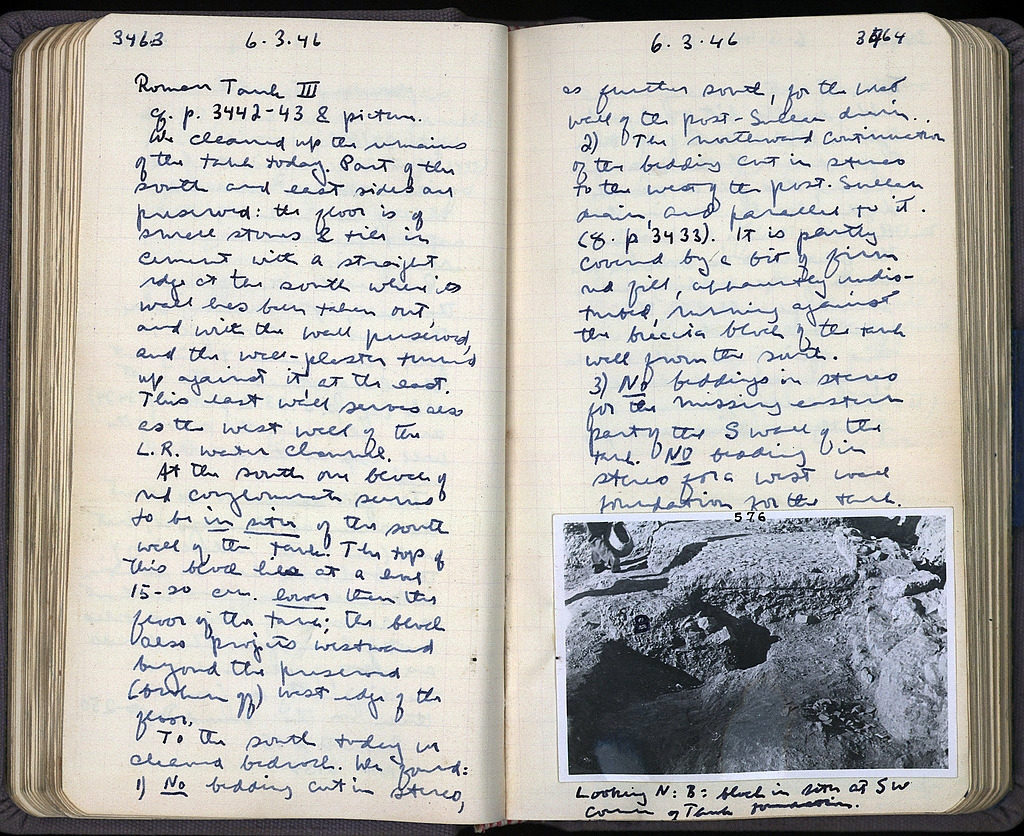 3463
6.3.46
Roman Tank III
cf. p. 3442-43 & picture.
We cleaned up the remains
of the tank today. Part of the
south and east sides are
preserved: the floor is of
small stones & tile in
cement with a straight
edge at the south where its
wall has been taken out,
and with the wall preserved,
and the wall-plaster turned
up against it at the east.
This east wall serves also
as the west wall of the
L.R. water channel.
At the south one block of
red conglomerate seems
to be in situ of the south
wall of the tank. The top of
this block lies at a level
15-20 cm. lower than the
floor of the tank; the block
also projects westward
beyond the preserved
(broken off) west edge of the
floor.
To the south today we
cleaned bedrock. We found:
1) No bedding cut in stereo,
6.3.46
3464
as further south, for the west
wall of the post-Sullan drain..
2) The northward continuation
of the bedding cut in stereo
to the west of the post-Sullan
drain, and parallel to it.
(cf. p 3433). It is partly
covered by a bit of firm
red fill, apparently undis-
turbed, running against
the breccia block of the tank
wall from the south.
3) No beddings in stereo
for the missing eastern
part of the S wall of the
tank. NO bedding in
stereo for a west wall
foundation for the tank.
576
B
Looking N: B: block in situ at SW
corner of Tank foundation.